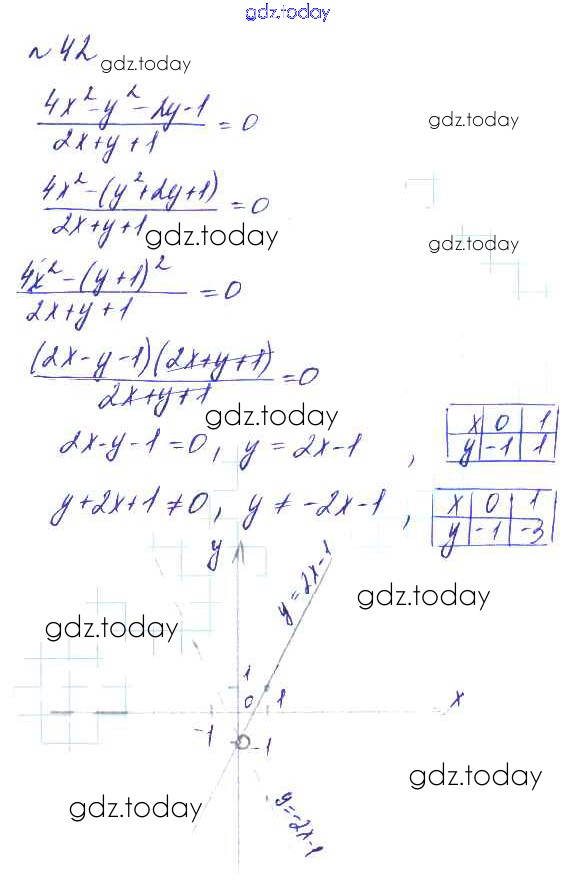 gdz.today
№42
gdz.today
(4x² - y² - 2y - 1)/(2x + y + 1) = 0
gdz.today
(4x² - (y² + 2y + 1))/(2x + y + 1) = 0
gdz.today
gdz.today
(4x² - (y + 1)²)/(2x + y + 1) = 0
((2x - y - 1)(2x + y + 1))/(2x + y + 1) = 0
gdz.today
2x - y - 1 = 0, y = 2x - 1,
x 0 1
y -1 1
y + 2x + 1 ≠ 0, y ≠ -2x - 1,
x 0 1
y -1 -3
y
y = 2x-1
gdz.today
gdz.today
1
0 1 x
-1
-1
gdz.today
gdz.today
y = -2x-1